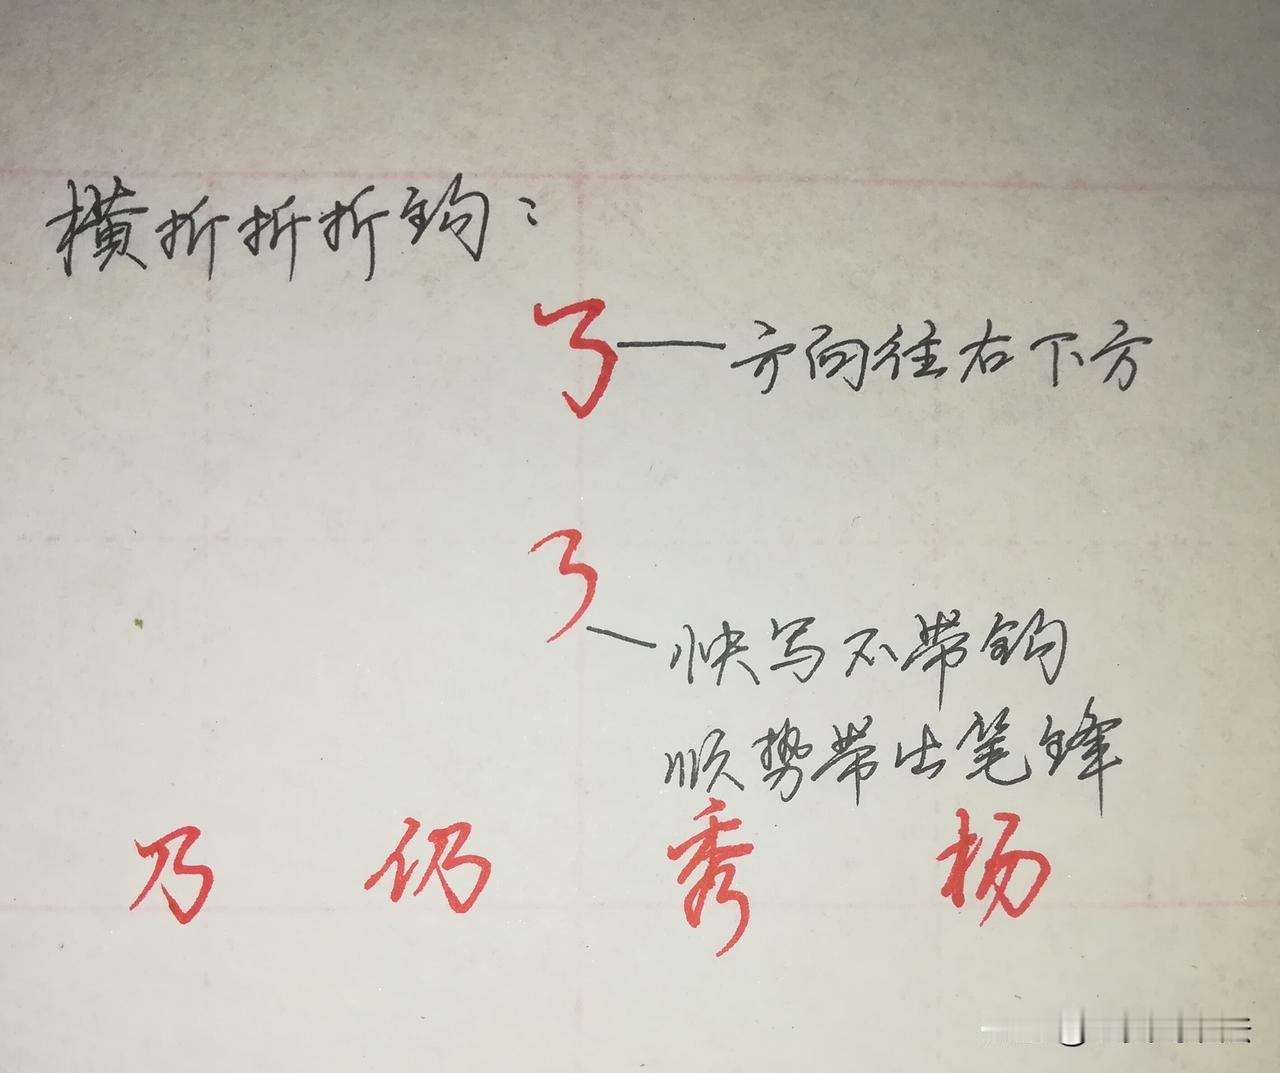 横折折折钩：
㇡ 方向往右下方
㇡ 快写不带钩
顺势带出笔锋
乃 仍 秀 杨